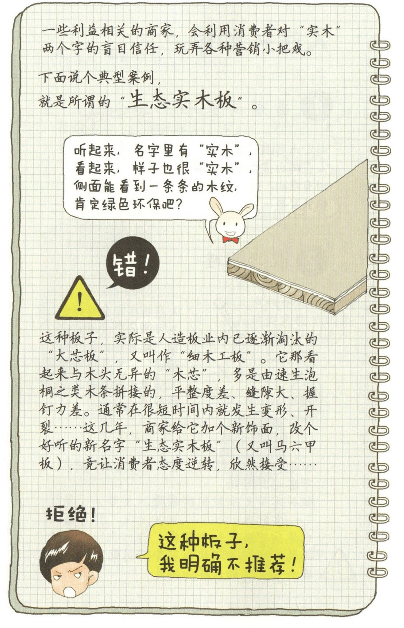 一些利益相关的商家，会利用消费者对“实木”
两个字的盲目信任，玩弄各种营销小把戏。
下面说个典型案例，
就是所谓的“生态实木板”。
听起来，名字里有“实木”，
看起来，样子也很“实木”，
侧面能看到一条条的木纹，
肯定绿色环保吧？
错！
!
这种板子，实际是人造板业内已逐渐淘汰的
“大芯板”，又叫作“细木工板”。它那看
起来与木头无异的“木芯”，多是由速生泡
桐之类木条拼接的，平整度差、缝隙大、握
钉力差。通常在很短时间内就发生变形、开
裂……这几年，商家给它加个新饰面，改个
好听的新名字“生态实木板”（又叫马六甲
板），竟让消费者态度逆转，欣然接受……
拒绝！
这种板子，
我明确不推荐！